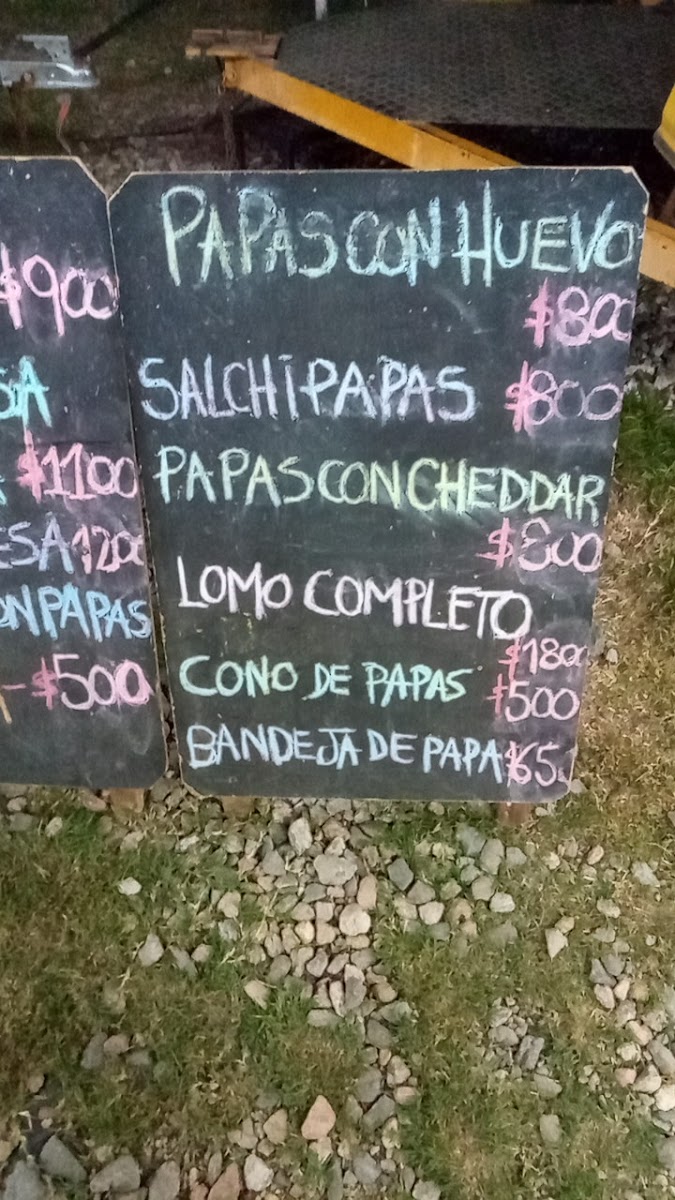 $900
SA
$1100
ESA 1200
ON PAPAS
-$500
PAPAS CON HUEVO
$800
SALCHIPAPAS $800
PAPAS CON CHEDDAR
$800
LOMO COMPLETO
$1800
CONO DE PAPAS $500
BANDEJA DE PAPA $65